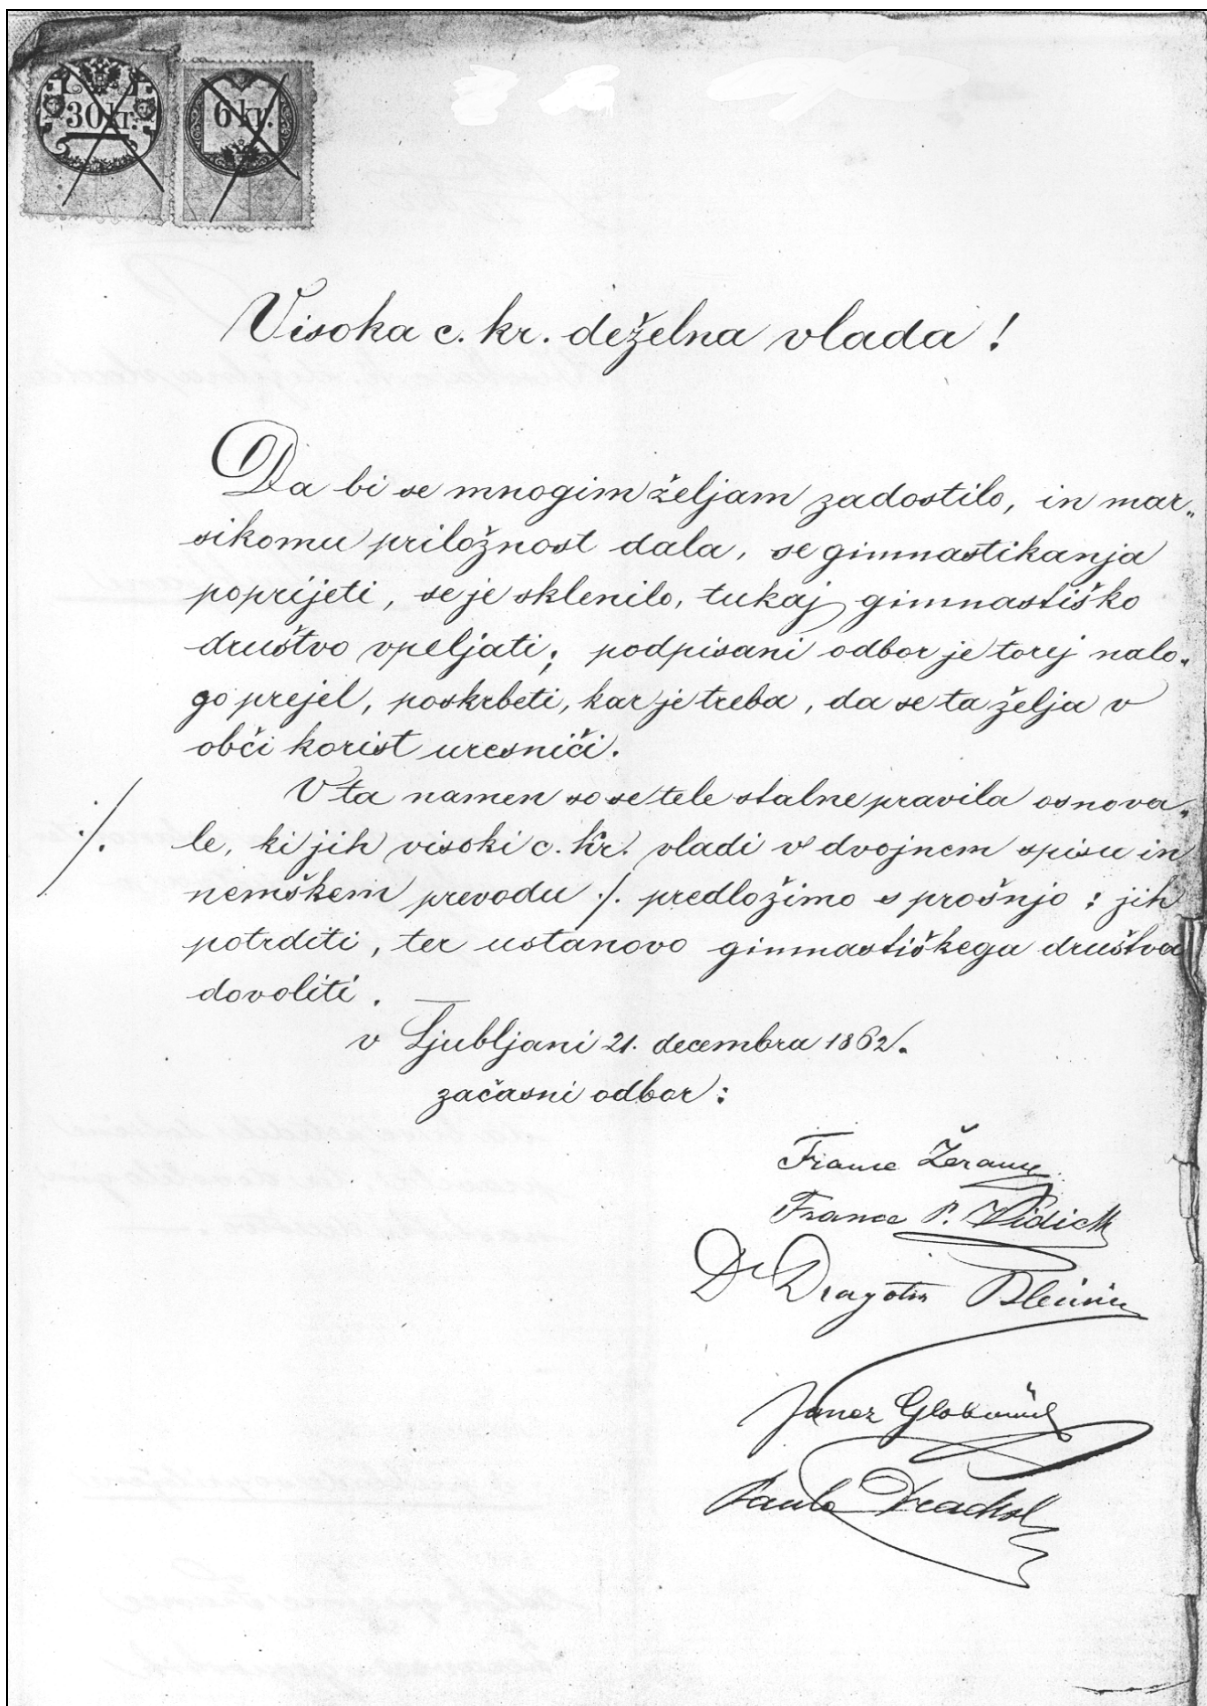 30 kr. 6 kr.
Visoka c. kr. deželna vlada!
Da bi se mnogim željam zadostilo, in mar„
sikomu priložnost dala, se gimnastikanja
poprijeti, se je sklenilo, tukaj gimnastiško
društvo vpeljati; podpisani odbor je torej nalo„
go prejel, poskrbeti, kar je treba, da se ta želja v
obči korist uresniči.
V ta namen so se tele stalne pravila osnova„
./. le, ki jih visoki c. kr. vladi v dvojnem spisu in
nemškem prevodu ./. predložimo s prošnjo: jih
potrditi, ter ustanovo gimnastiškega društva
dovoliti. —
v Ljubljani 21. decembra 1862.
začasni odbor:
France
France P. Vidic
Dr Dragotin
Janez Globočnik
Drachsl